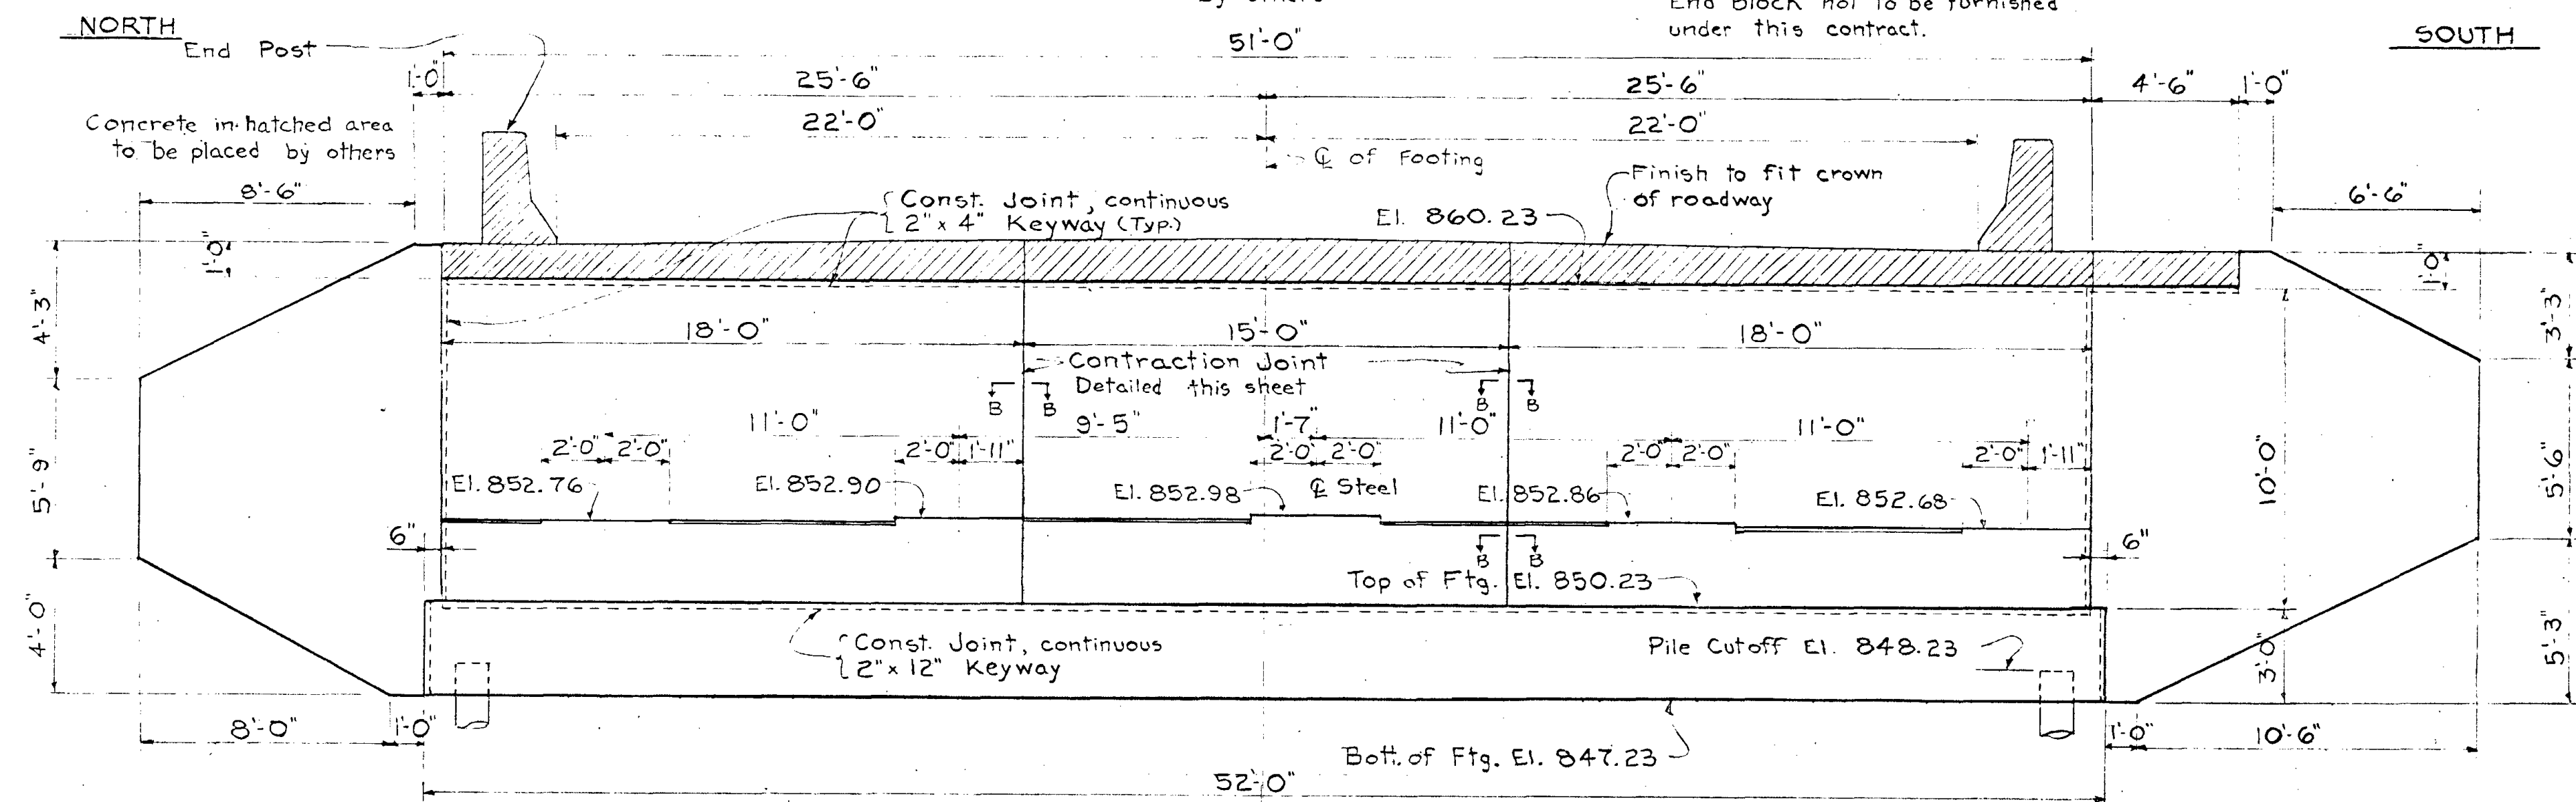 By others
End Block not to be furnished
under this contract.
NORTH
SOUTH
End Post
51'-0"
1'-0"
25'-6"
25'-6"
4'-6"
1'-0"
Concrete in hatched area
to be placed by others
22'-0"
22'-0"
℄ of Footing
Finish to fit crown
of roadway
8'-6"
6'-6"
Const. Joint, continuous
2" x 4" Keyway (Typ.)
El. 860.23
1'-0"
1'-0"
4'-3"
3'-3"
18'-0"
15'-0"
18'-0"
Contraction Joint
Detailed this sheet
B B
B B
11'-0"
9'-5"
1'-7"
11'-0"
11'-0"
2'-0" 2'-0"
2'-0" 1'-11"
2'-0" 2'-0"
2'-0" 2'-0"
2'-0" 1'-11"
5'-9"
10'-0"
5'-6"
El. 852.76
El. 852.90
El. 852.98
℄ Steel
El. 852.86
El. 852.68
6"
6"
B B
Top of Ftg. El. 850.23
4'-0"
Const. Joint, continuous
2" x 12" Keyway
Pile Cutoff El. 848.23
3'-0"
5'-3"
8'-0"
1'-0"
1'-0"
10'-6"
Bott. of Ftg. El. 847.23
52'-0"